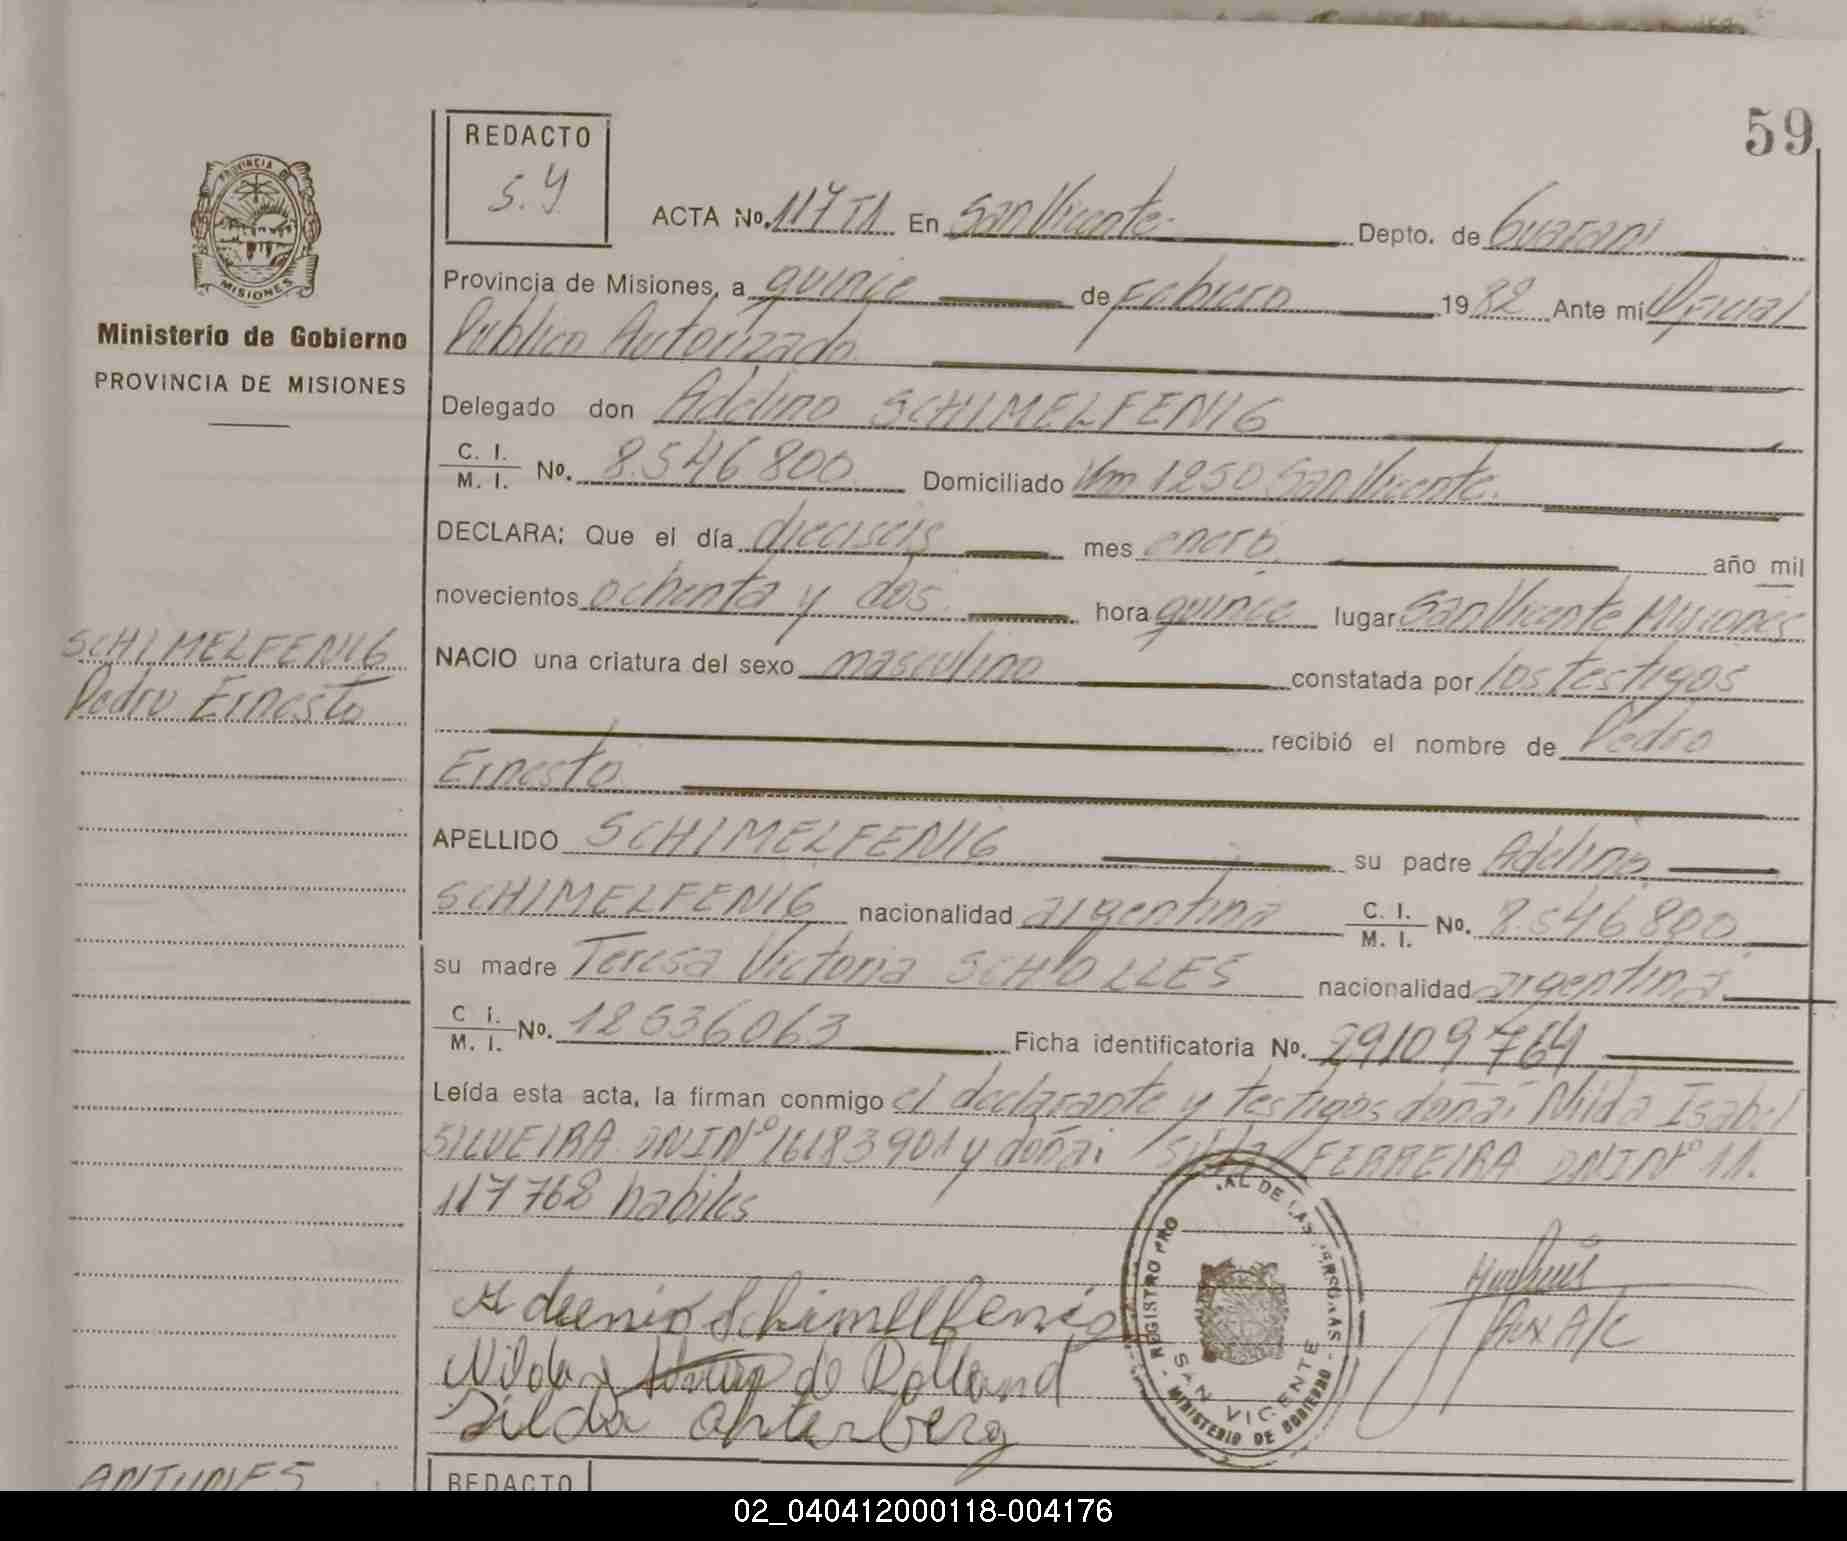 59
REDACTO
S.Y
ACTA No. 117 T1 En San Vicente Depto. de Guarani
PROVINCIA DE
MISIONES
Ministerio de Gobierno
PROVINCIA DE MISIONES
Provincia de Misiones, a quince de Febrero 1982 Ante mi Oficial
Publico Autorizado
Delegado don Adelino SCHIMELFENIG
C. I. / M. I. No. 8.546800 Domiciliado Km 1250 San Vicente.
DECLARA: Que el día dieciseis mes enero año mil
novecientos ochenta y dos. hora quince lugar San Vicente Misiones
SCHIMELFENIG
Pedro Ernesto
NACIO una criatura del sexo masculino constatada por los testigos
recibió el nombre de Pedro
Ernesto
APELLIDO SCHIMELFENIG su padre Adelino
SCHIMELFENIG nacionalidad argentina C. I. / M. I. No. 8.546800
su madre Teresa Victoria SCHOLLES nacionalidad argentina
C i. / M. I. No. 12536063 Ficha identificatoria No. 29109764
Leída esta acta, la firman conmigo el declarante y testigos doña: Nilda Isabel
SILVEIRA DNI Nº 16183901 y doña: Silda FERREIRA DNI Nº 11.
117768 habiles
REGISTRO PRO AL DE LAS PERSONAS - MINISTERIO DE GOBIERNO -
SAN VICENTE
Aux A/C
Schimelfenig
Nilda de Rolland
Silda
ANTUNES
REDACTO
02_040412000118-004176